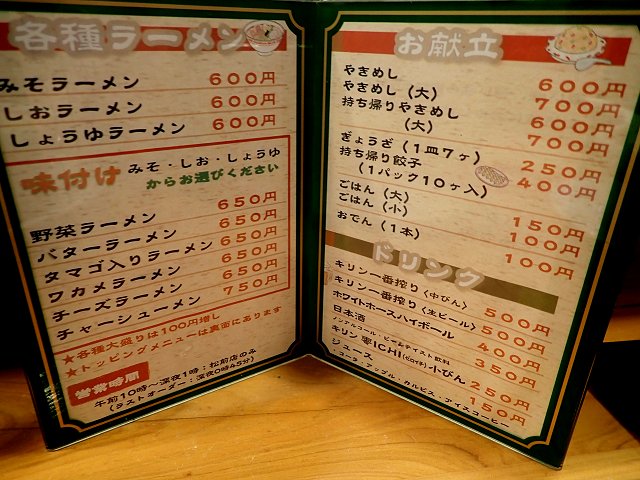 各種ラーメン
みそラーメン 600円
しおラーメン 600円
しょうゆラーメン 600円
味付け みそ・しお・しょうゆ
からお選びください
野菜ラーメン 650円
バターラーメン 650円
タマゴ入りラーメン 650円
ワカメラーメン 650円
チーズラーメン 650円
チャーシューメン 750円
★各種大盛りは100円増し
★トッピングメニューは裏面にあります
営業時間
午前10時〜深夜1時:松前店のみ
(ラストオーダー:深夜0時45分)
お献立
やきめし 600円
やきめし(大) 700円
持ち帰りやきめし 600円
(大) 700円
ぎょうざ(1皿7ヶ) 250円
持ち帰り餃子
(1パック10ヶ入) 400円
ごはん(大) 150円
ごはん(小) 100円
おでん(1本) 100円
ドリンク
キリン一番搾り〈中びん〉 500円
キリン一番搾り〈生ビール〉 500円
ホワイトホースハイボール 400円
日本酒 350円
ノンアルコール・ビールテイスト飲料
キリン 零ICHI(ゼロイチ)小びん 250円
ジュース 150円
・コーラ・アップル・カルピス・アイスコーヒー